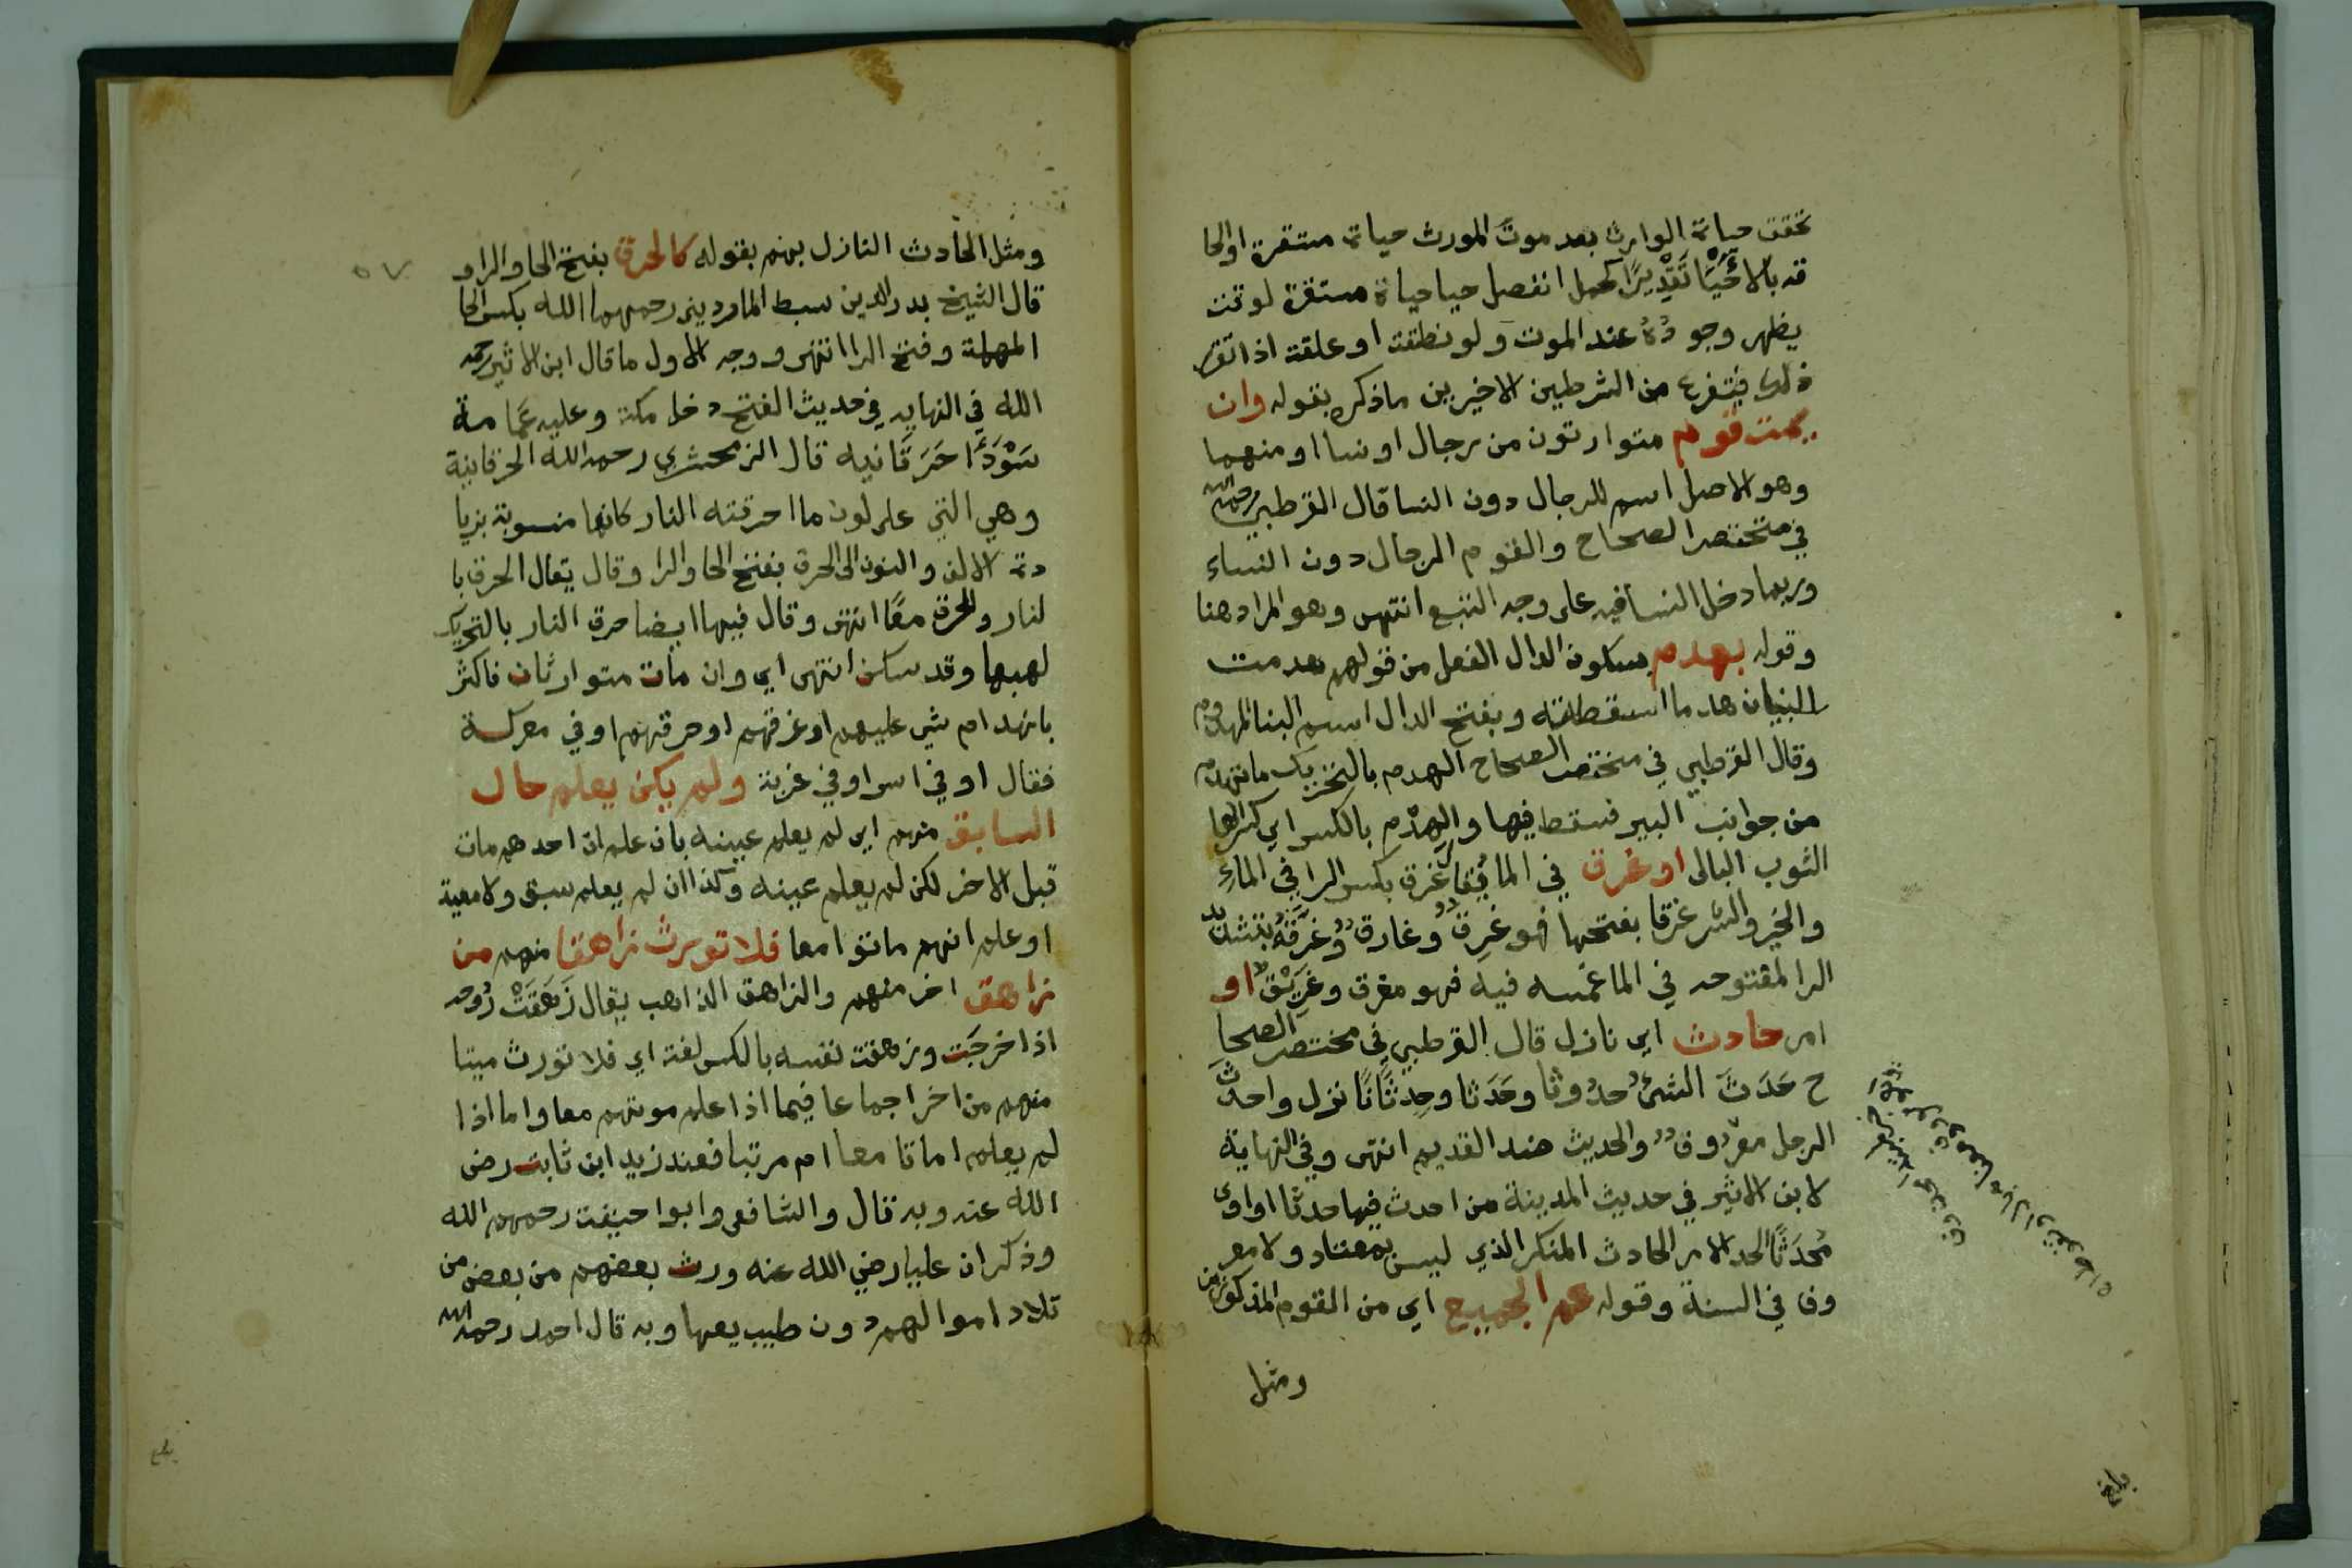 تحققت حياة الوارث بعد موت المورث حياة مستقرة او الحا
قه بالاحيا تقديرا كحمل انفصل حيا حياة مستقرة لوقت
يظهر وجوده عند الموت ولو نطفة او علقة اذا تقرر
ذلك فيتفرع من الشرطين الاخيرين ماذكره بقوله وان
يمت قوم متوارثون من رجال او نسا او منهما
وهو الاصل اسم للرجال دون النسا قال القرطبي رحمه الله
في مختصر الصحاح والقوم الرجال دون النساء
وربما دخل النسا فيه على وجه التبع انتهى وهو المراد هنا
وقوله بهدم بسكون الدال الفعل من قولهم هدمت
البنيان هدما اسقطته وبفتح الدال اسم البنا المهدوم
وقال القرطبي في مختصر الصحاح الهدم بالتحريك ماتهدم
من جوانب البير فسقط فيها والهِدْم بالكسر اي كسر الها
الثوب البالى او غرق في الما يقال غرق بكسر الرا في الماءِ
والخير والشر غرقا بفتحها فهو غَرِقٌ وغارقٌ وغرّقه بتشديد
الرا المفتوحه في الما غمسه فيه فهو مغرق وغَرِيْقٌ او
امر حادث اي نازل قال القرطبي في مختصر الصحا
ح حَدَثَ الشئُ حدُوثا وحَدَثا وحِدثَانًا نزل واحدث
الرجل معرُوف والحديث ضد القديم انتهى وفي النهاية
لابن الاثير في حديث المدينة من احدث فيها حدثا او اوى
مُحدَثًا الحد الامر الحادث المنكر الذي ليس بمعتاد ولا معر
وف في السنة وقوله عم الجميع اي من القوم المذكورين
ومثل
بلغ
ومثل الحادث النازل بهم بقوله كالحرق بفتح الحا والرا و
قال الشيخ بدر الدين سبط الماردينى رحمهما الله بكسر الحا
المهملة وفتح الرا انتهى ووجه الاول ما قال ابن الاثير رحمه
الله في النهايه في حديث الفتح دخل مكة وعليه عَمَامة
سَوْدَأ حَرَقَانيه قال الزمحشري رحمه الله الحرقانية
وهي التي على لون ما احرقته النار كانها منسوبة بزيا
دة الالف والنون الى الحرق بفتح الحا والرا وقال يقال الحرق با
لنار والحرق معًا انتهى وقال فيها ايضا حرق النار بالتحريك
لهبها وقد سكن انتهى اي وان مات متوارثان فاكثر
بانهدام شي عليهم او غرقهم او حرقهم او في معركة
فقال او في اسر او في غربة ولم يكن يعلم حال
السابق منهم اي لم يعلم عينه بان علم ان احدهم مات
قبل الاخر لكن لم يعلم عينه وكذا ان لم يعلم سبق ولا معية
او علم انهم ماتوا معا فلا تورث زاهقا منهم من
زاهق اخر منهم والزاهق الذاهب يقال زَهَقَتْ رُوحه
اذا خرجَت وزهقت نفسه بالكسر لغة اي فلا تورث ميتا
منهم من اخر اجماعا فيما اذا علم موتهم معا واما اذا
لم يعلم اماتا معا ام مرتبا فعند زيد ابن ثابت رضى
الله عنه وبه قال والشافعى وابوا حنيفة رحمهم الله
وذكر ان عليا رضي الله عنه ورث بعضهم من بعض من
تلاد اموالهم دون طيب يعها وبه قال احمد رحمه الله